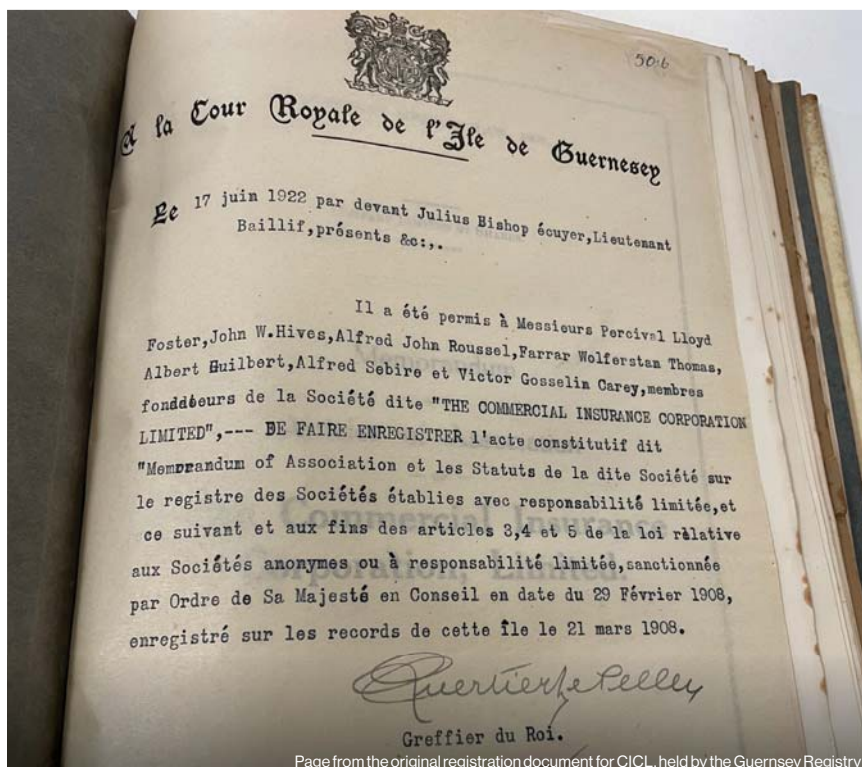 506
A la Cour Royale de l'Ile de Guernesey
Le 17 juin 1922 par devant Julius Bishop écuyer,Lieutenant
Baillif,présents &c:,.
Il a été permis à Messieurs Percival Lloyd
Foster,John W.Hives,Alfred John Roussel,Farrar Wolferstan Thomas,
Albert Guilbert,Alfred Sebire et Victor Gosselin Carey,membres
fondateurs de la Société dite "THE COMMERCIAL INSURANCE CORPORATION
LIMITED",--- DE FAIRE ENREGISTRER l'acte constitutif dit
"Memorandum of Association et les Statuts de la dite Société sur
le registre des Sociétés établies avec responsabilité limitée,et
ce suivant et aux fins des articles 3,4 et 5 de la loi rèlative
aux Sociétés anonymes ou à responsabilité limitée,sanctionnée
par Ordre de Sa Majesté en Conseil en date du 29 Février 1908,
enregistré sur les records de cette île le 21 mars 1908.
Quertier Le Pelley
Greffier du Roi.
Page from the original registration document for CICL, held by the Guernsey Registry